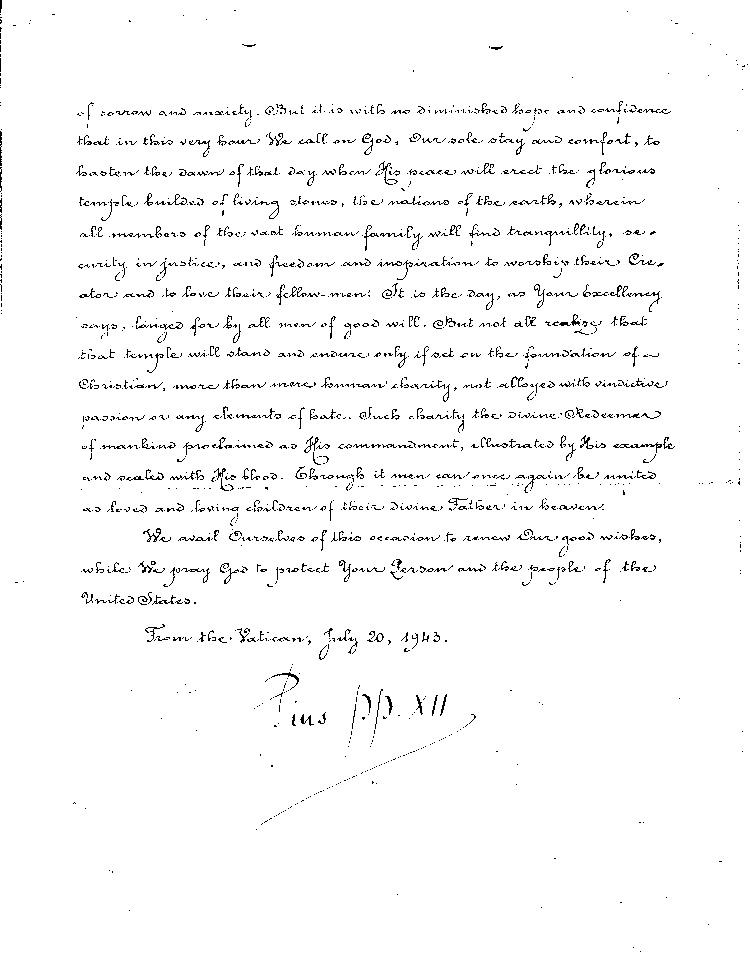 of sorrow and anxiety. But it is with no diminished hope and confidence
that in this very hour We call on God, Our sole stay and comfort, to
hasten the dawn of that day when His peace will erect the glorious
temple builded of living stones, the nations of the earth, wherein
all members of the vast human family will find tranquillity, se-
curity in justice, and freedom and inspiration to worship their Cre-
ator and to love their fellow-men. It is the day, as Your Excellency
says, longed for by all men of good will. But not all realize that
that temple will stand and endure only if set on the foundation of a
Christian, more than mere human charity, not alloyed with vindictive
passion or any elements of hate. Such charity the divine Redeemer
of mankind proclaimed as His commandment, illustrated by His example
and sealed with His blood. Through it men can once again be united
as loved and loving children of their divine Father in heaven.
We avail Ourselves of this occasion to renew Our good wishes,
while We pray God to protect Your Person and the people of the
United States.
From the Vatican, July 20, 1943.
Pius pp. XII